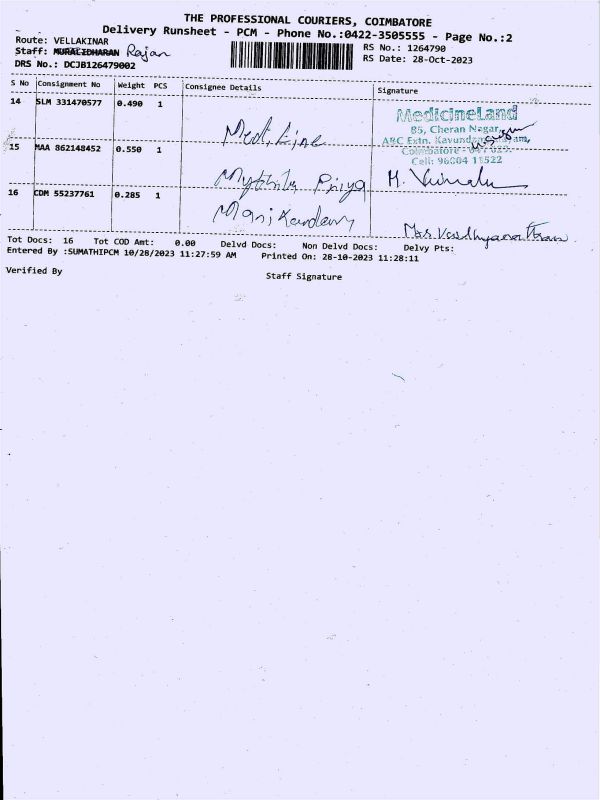 THE PROFESSIONAL COURIERS, COIMBATORE
Delivery Runsheet - PCM - Phone No.:0422-3505555 - Page No.:2
Route: VELLAKINAR
RS No.: 1264790
Staff: MURALIDHARAN Rajan
RS Date: 28-Oct-2023
DRS No.: DCJB126479002
S No Consignment No Weight PCS Consignee Details Signature
14 SLM 331470577 0.490 1
MedicineLand
85, Cheran Nagar,
ABC Extn. Kavundampalayam,
Coimbatore - 641 029.
Cell: 96004 11522
15 MAA 862148452 0.550 1
Priya
16 CDM 55237761 0.285 1 Manikandan
Tot Docs: 16 Tot COD Amt: 0.00 Delvd Docs: Non Delvd Docs: Delvy Pts:
Entered By :SUMATHIPCM 10/28/2023 11:27:59 AM Printed On: 28-10-2023 11:28:11
Verified By Staff Signature